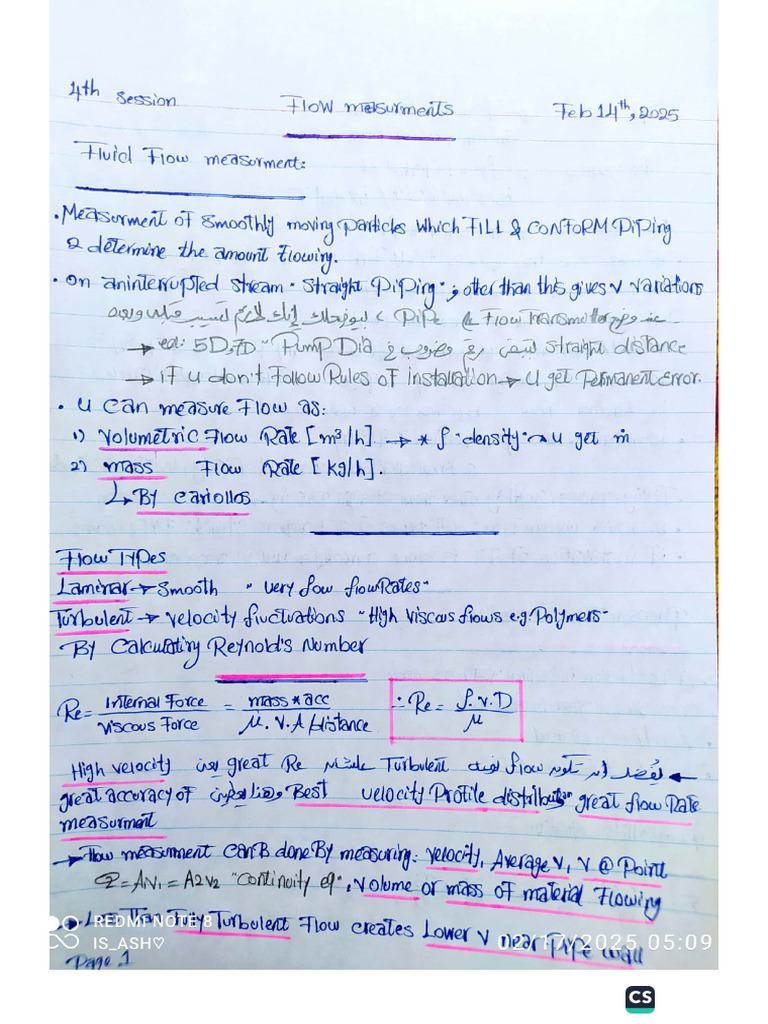 4th Session
Flow measurments
Feb 14th, 2025
Fluid Flow measurment:
• Measurment of smoothly moving particles which FILL & CONFORM PiPing
& determine the amount flowing.
• On aninterrupted stream "straight PiPing", other than this gives v variations
عند وضع Flow Transmitter على PiPe ،
→ eq: 5D, 7D "Pump Dia في رقم مضروب straight distance
→ if u don't Follow Rules of installation → u get Permanent Error.
• u can measure Flow as:
1) Volumetric Flow Rate [m³/h] → * ρ "density" → u get ṁ
2) mass Flow Rate [kg/h].
↳ By Coriollos
Flow Types
Laminar → smooth "very low flow Rates"
Turbulent → velocity fluctuations "High viscous flows e.g. Polymers"
By Calculating Reynold's Number
Re = internal Force / viscous Force = mass * acc / μ . v. A / distance
∴ Re = ρ. v. D / μ
← يُفضل ان تكون flow نوعيه Turbulent علشان Re great يبقى High velocity
great accuracy of Best velocity Profile distribut great flow Rate
measurment
→ Flow measurment can B done By measuring: velocity, Average v, v @ Point
Q = A1V1 = A2V2 "Continuity eq", volume or mass of material Flowing
Turbulent Flow creates Lower v near PiPe wall
Page 1
REDMI NOTE 8
IS_ASH♡
02/17/2025 05:09
CS